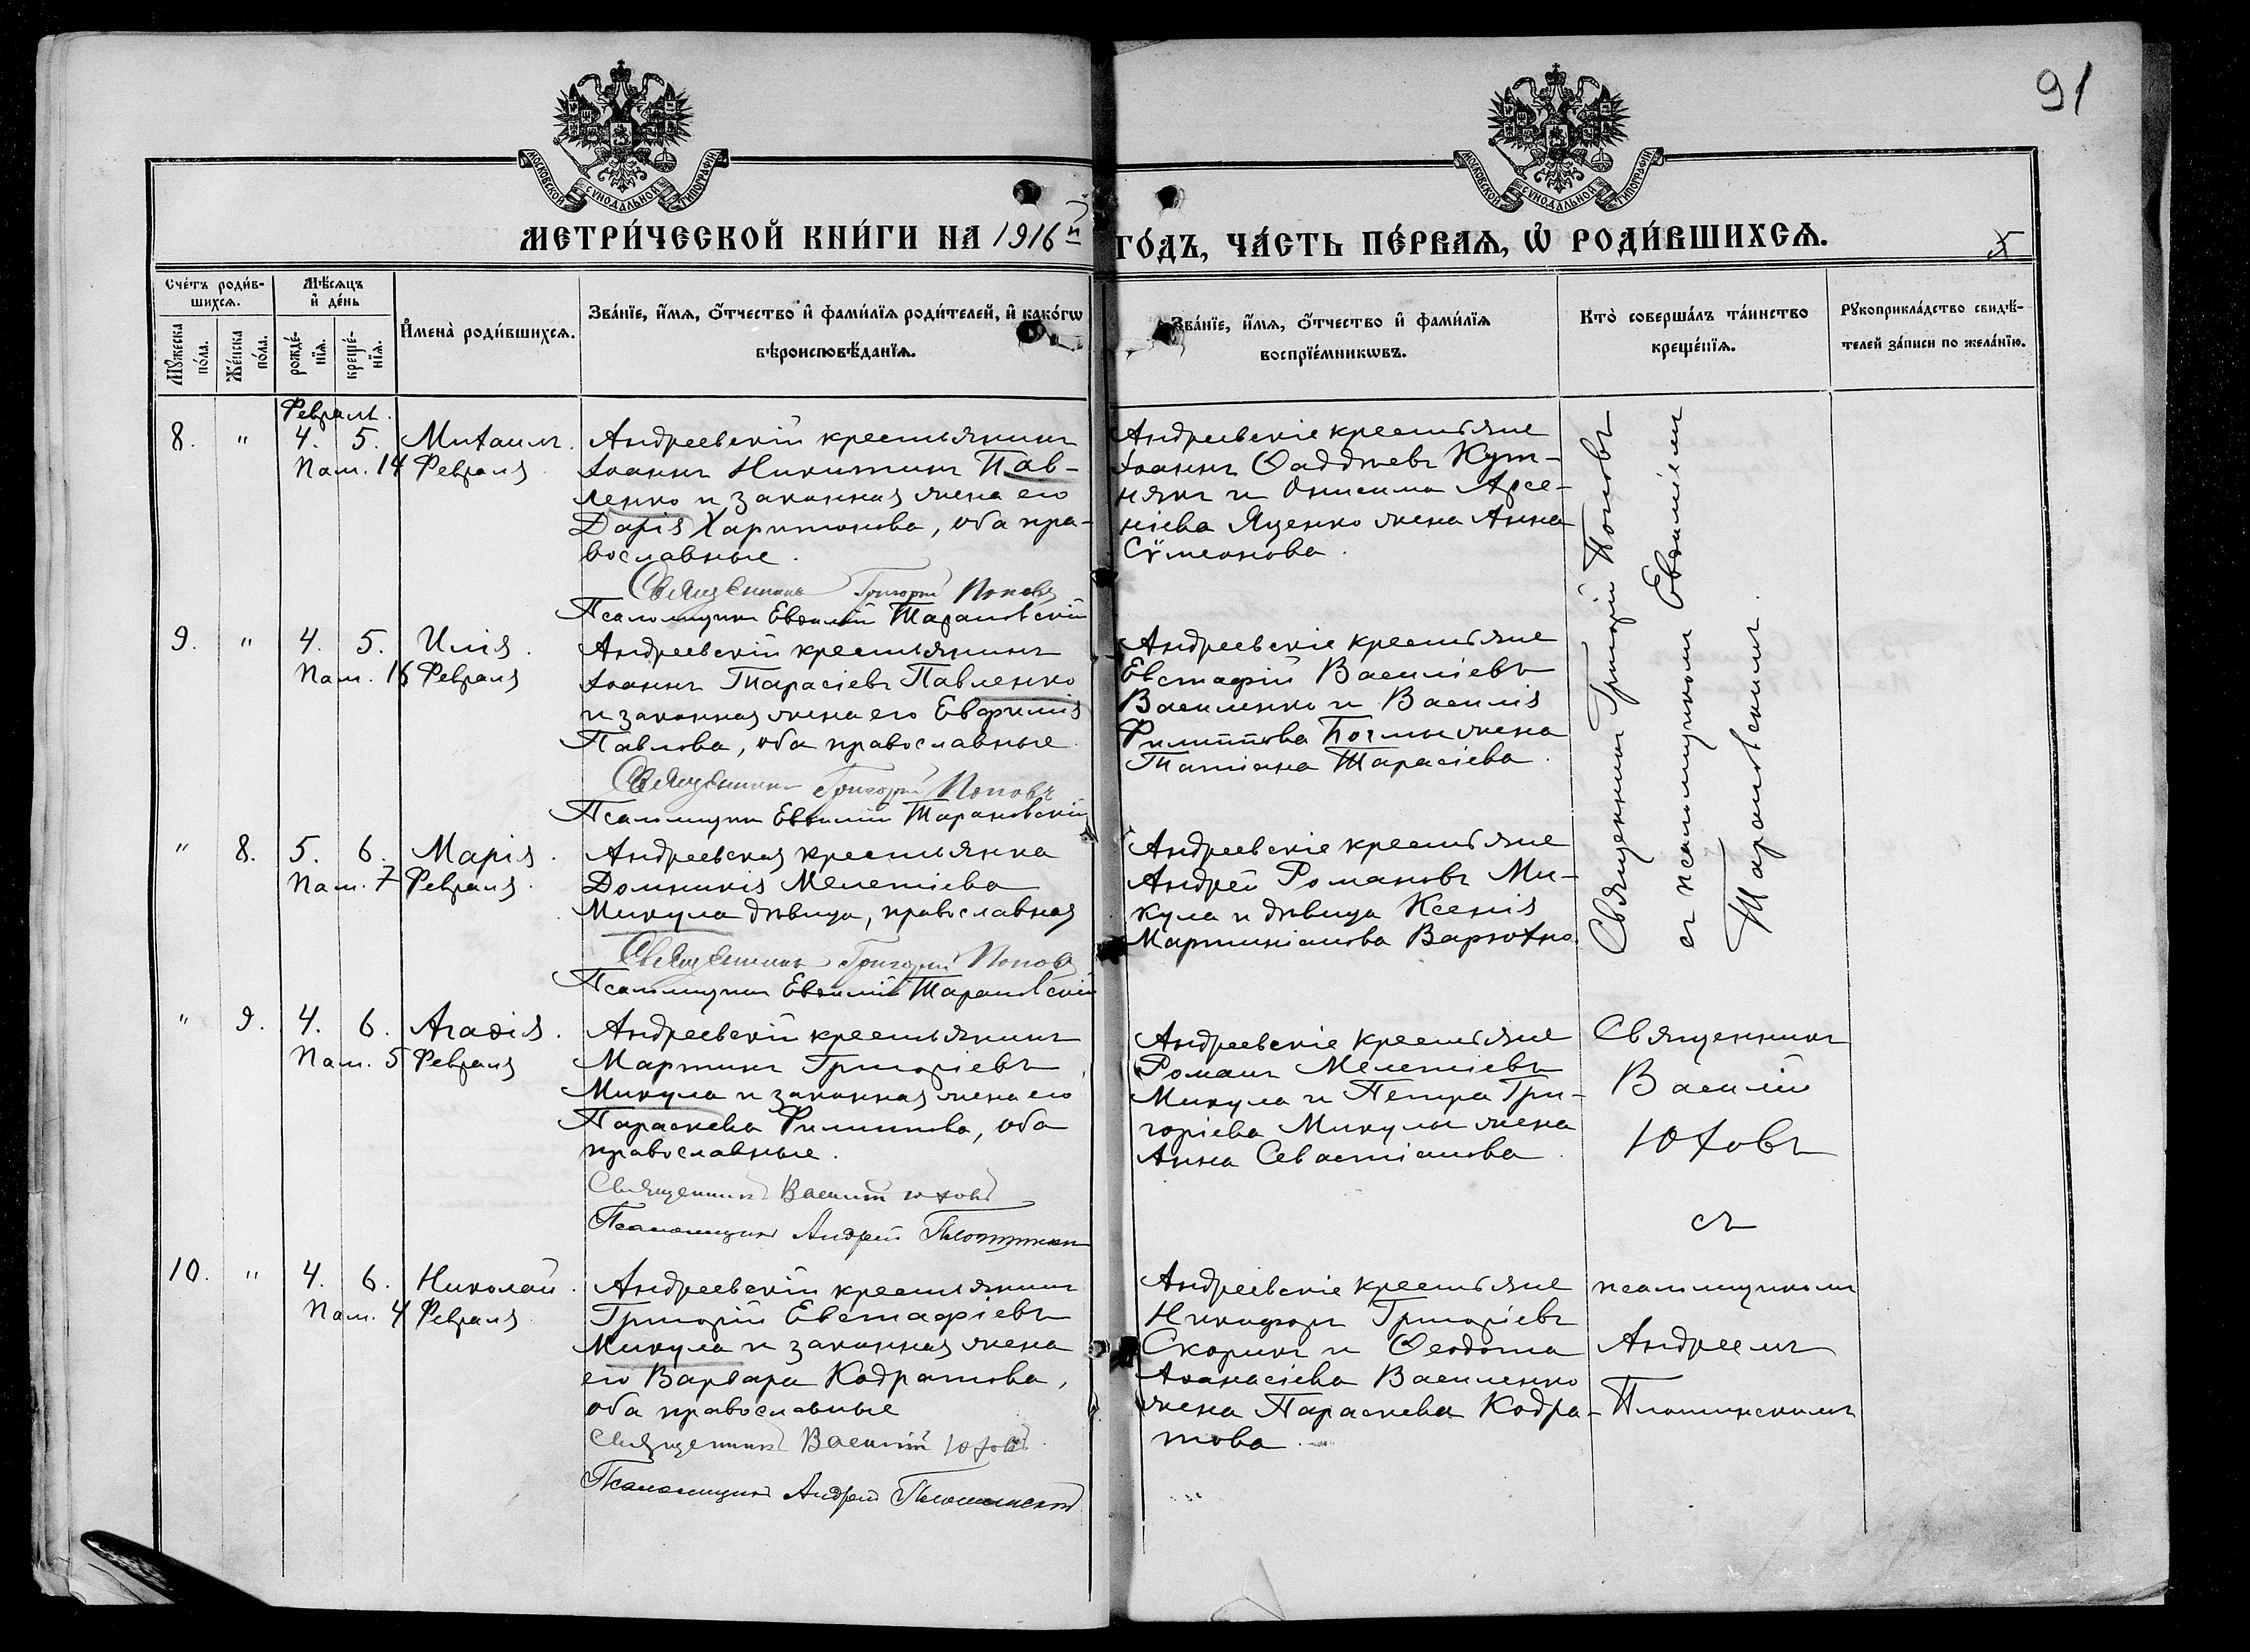 91
МОСКОВСКОЙ СѴНОДАЛЬНОЙ ТИПОГРАФІИ
МОСКОВСКОЙ СѴНОДАЛЬНОЙ ТИПОГРАФІИ
МЕТРИ́ЧЕСКОЙ КНИ́ГИ НА 1916й ГО́ДЪ, ЧА́СТЬ ПЕ́РВАѦ, Ѡ҆ РОДИ́ВШИХСѦ.
5
Сче́тъ роди́в-
шихсѧ.
Мѣ́сѧцъ
и҆ де́нь
Мꙋ́жеска по́ла.
Же́нска по́ла.
рожде́-нїѧ.
креще́-нїѧ.
И҆мена̀ роди́вшихсѧ.
Зва́нїе, и҆́мѧ, ѻ҆́тчество и҆ фами́лїѧ роди́телей, и҆ како́гѡ
вѣроисповѣ́данїѧ.
Зва́нїе, и҆́мѧ, ѻ҆́тчество и҆ фами́лїѧ
воспрїе́мникѡвъ.
Кто̀ соверша́лъ та́инство
креще́нїѧ.
Рꙋкоприкла́дство свидѣ́-
телей за́писи по жела́нїю.
Февраль.
8. " 4. 5. Михаилъ.
Пам. 14 Февраля
Андреевскій крестьянинъ
Іоаннъ Никитинъ Пав-
ленко и законная жена его
Дарія Харитонова, оба пра-
вославные.
Священникъ Григорій Поповъ
Псаломщикъ Евѳимій Тарановскій
Андреевскіе крестьяне
Іоаннъ Ѳаддеевъ Кут-
някъ и Онисима Арсе-
ніева Яценко жена Анна
Сѵмеонова.
Священникъ Григорій Поповъ
съ псаломщикомъ Евѳиміемъ
Тарановскимъ.
9. " 4. 5. Илія.
Пам. 16 Февраля
Андреевскій крестьянинъ
Іоаннъ Тарасіевъ Павленко
и законная жена его Евфимія
Павлова, оба православные.
Священникъ Григорій Поповъ
Псаломщикъ Евѳимій Тарановскій
Андреевскіе крестьяне
Евстафій Василіевъ
Василенко и Василія
Филиппова жена
Татіана Тарасіева.
" 8. 5. 6. Марія.
Пам. 7 Февраля.
Андреевская крестьянка
Домникія Мелетіева
Микула дѣвица, православная
Священникъ Григорій Поповъ
Псаломщикъ Евѳимій Тарановскій
Андреевскіе крестьяне
Андрей Романовъ Ми-
кула и дѣвица Ксенія
Мартиніанова Варюхно.
" 9. 4. 6. Агаѳія.
Пам. 5 Февраля
Андреевскій крестьянинъ
Мартинъ Григоріевъ
Микула и законная жена его
Параскева Филиппова, оба
православные.
Священникъ Василій Юховъ
Псаломщикъ Андрей
Андреевскіе крестьяне
Романъ Мелетіевъ
Микула и Петра Гри-
горіева Микулы жена
Анна Севастіанова.
Священникъ
Василій
Юховъ
съ
псаломщикомъ
Андреемъ
Плотинскимъ
10. " 4. 6. Николай.
Пам. 4 Февраля
Андреевскій крестьянинъ
Григорій Евстафіевъ
Микула и законная жена
его Варвара Кодратова,
оба православные
Священникъ Василій Юховъ.
Псаломщикъ Андрей Плотинскій
Андреевскіе крестьяне
Никифоръ Григоріевъ
Скорикъ и Ѳеодота
Аѳанасіева Василенко
жена Параскева Кодра-
това.